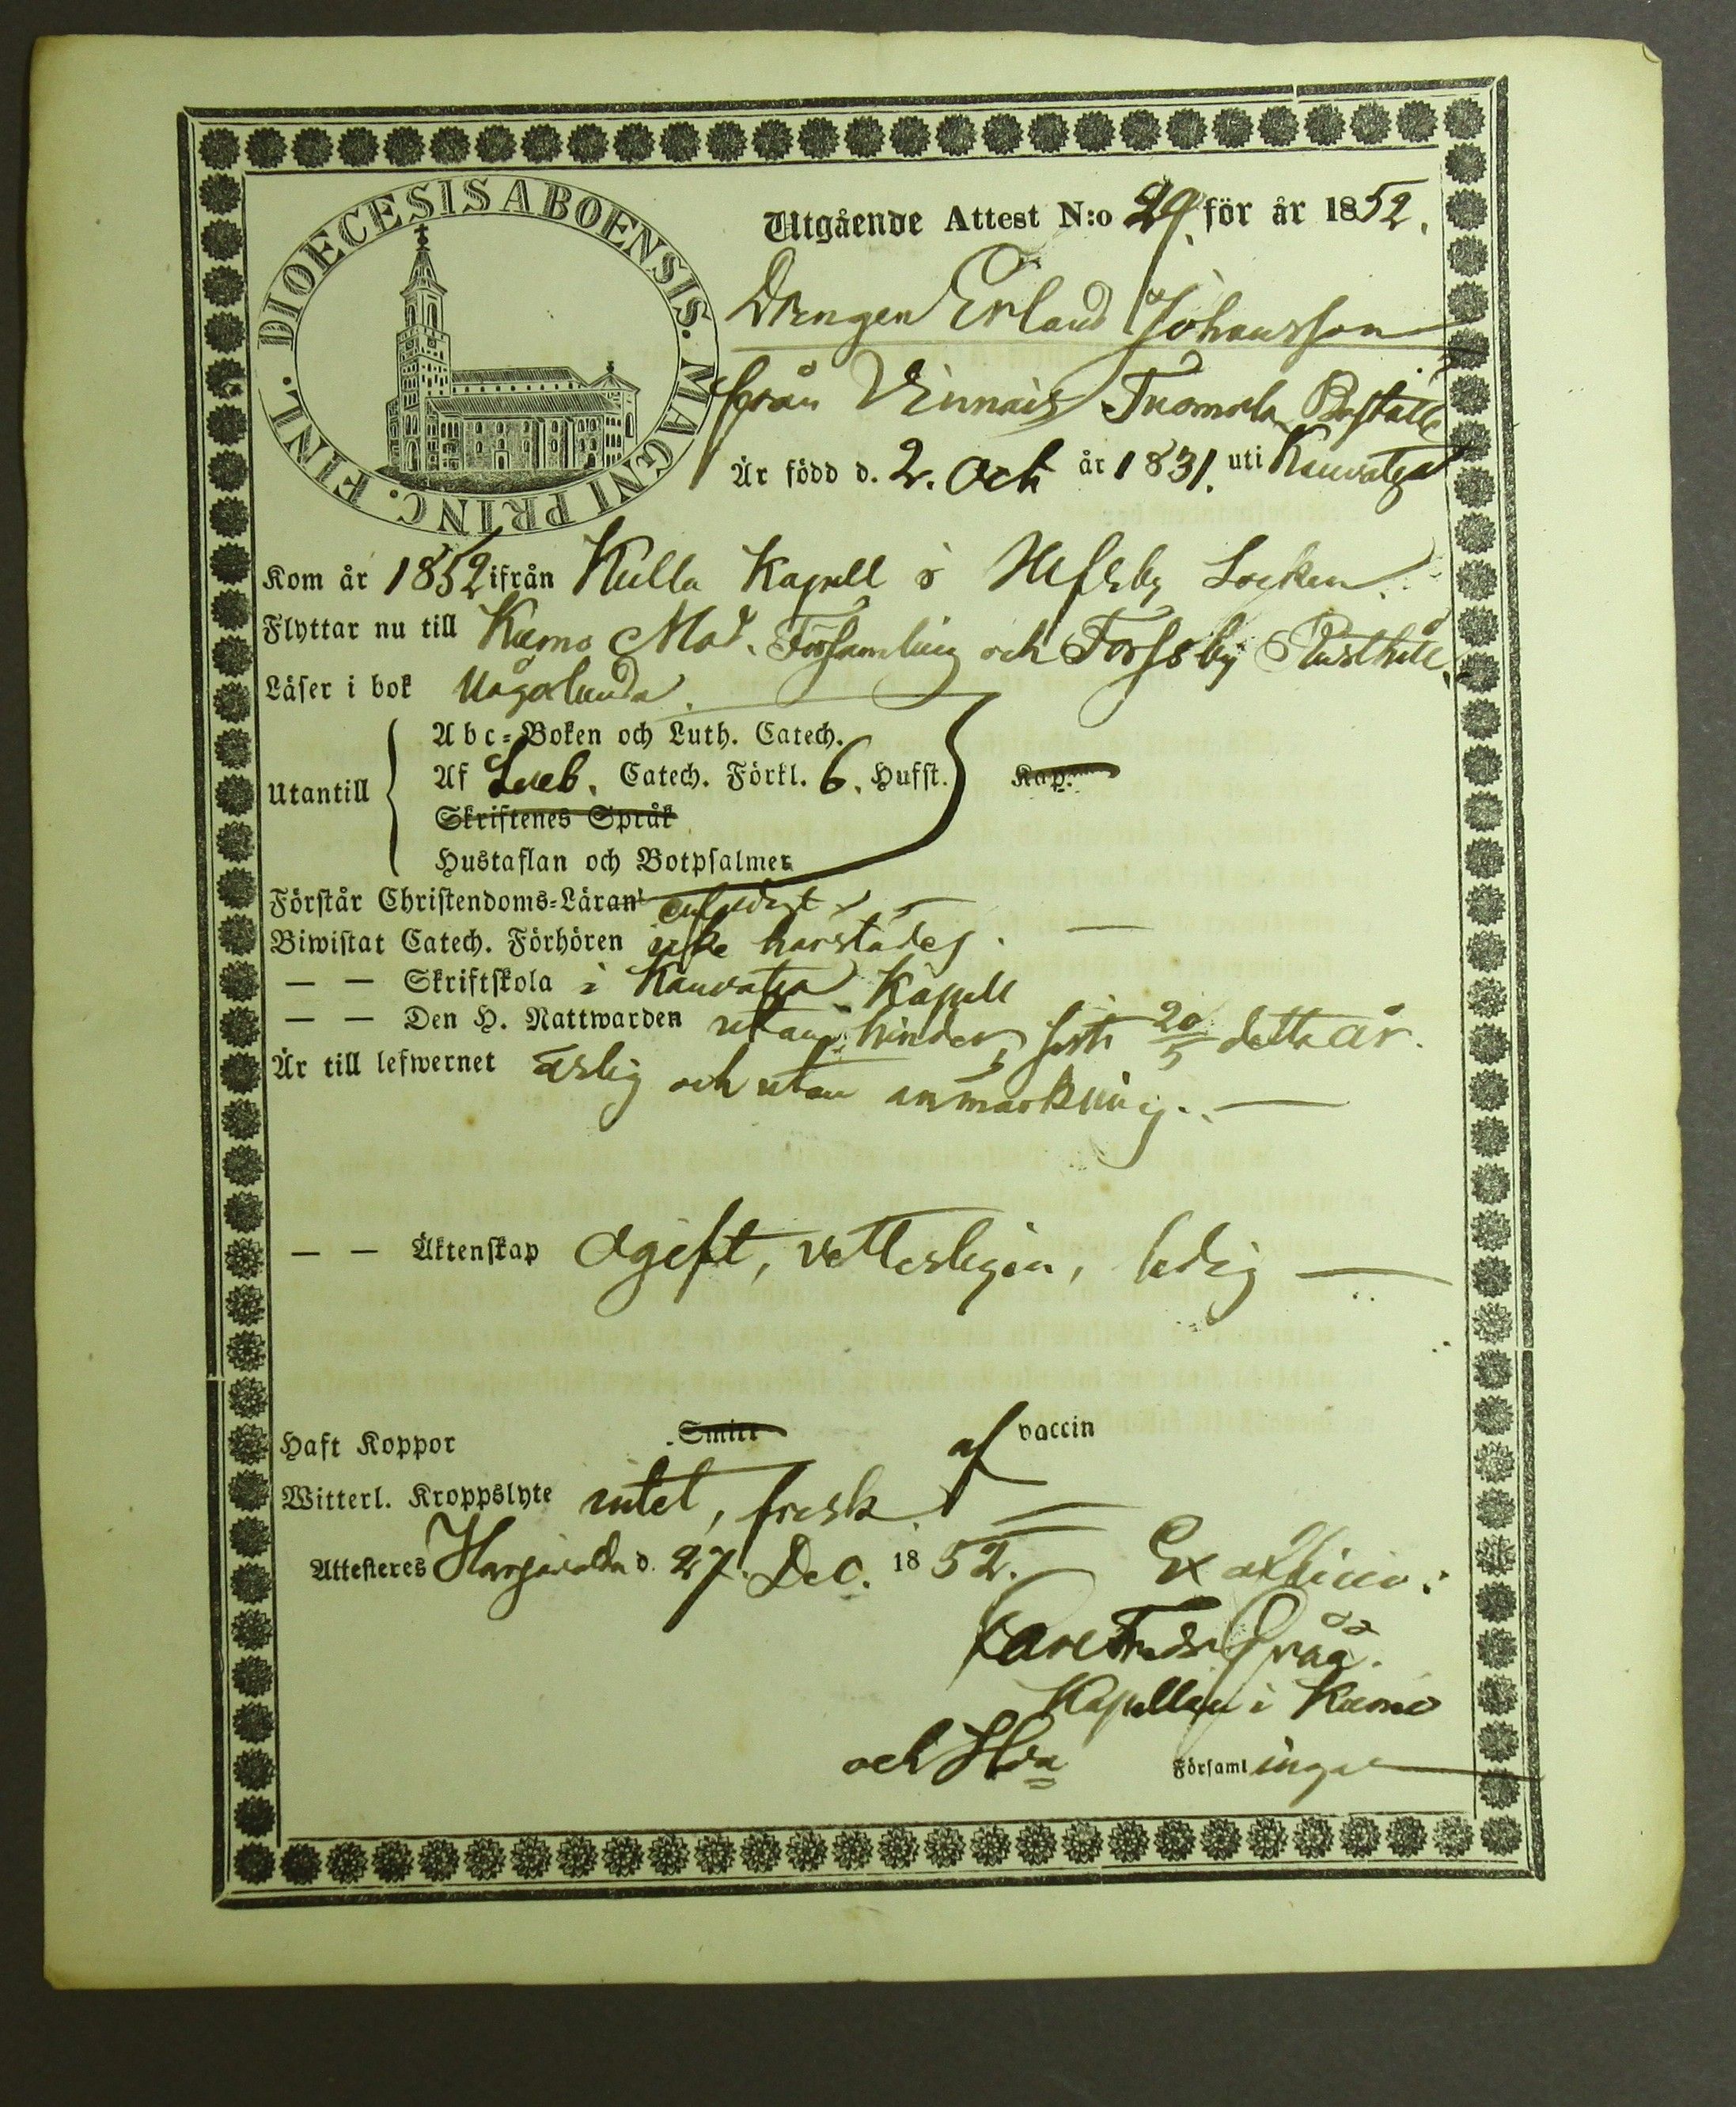 DIOECESIS ABOENSIS. MAGNI PRINC. FINL.
Utgående Attest N:o 29. för år 1852.
Drengen Erland Johansson
från Vinnais Tuomola Boställe
Är född d. 2. Oct. år 1831. uti Kauvatsa
Kom år 1852 ifrån Kulla Kapell i Socken.
Flyttar nu till Kumo Mod. Församling och Forssby Rusthåll.
Läser i bok någorlunda.
Utantill
Abc-Boken och Luth. Catech.
Af Sveb. Catech. Förkl. 6. Hufst. Kap.
Skriftenes Språk
Hustaflan och Botpsalmer
Förstår Christendoms-Läran enfaldigt
Biwistat Catech. Förhören icke härstädes.
— — Skriftskola i Kauvatsa Kapell
— — Den H. Nattwarden utan hinder, sist 20/5 detta år.
Är till lefwernet ärlig och utan anmärkning.
— — Äktenskap Ogift, vetterligen, ledig
Haft Koppor Smitt af vaccin
Witterl. Kroppslyte intet, frisk
Attesteres Harjavalta d. 27. Dec. 1852. Ex officio:
Carl Fredr Gråå.
Kapellan i Kumo
och Församlingar